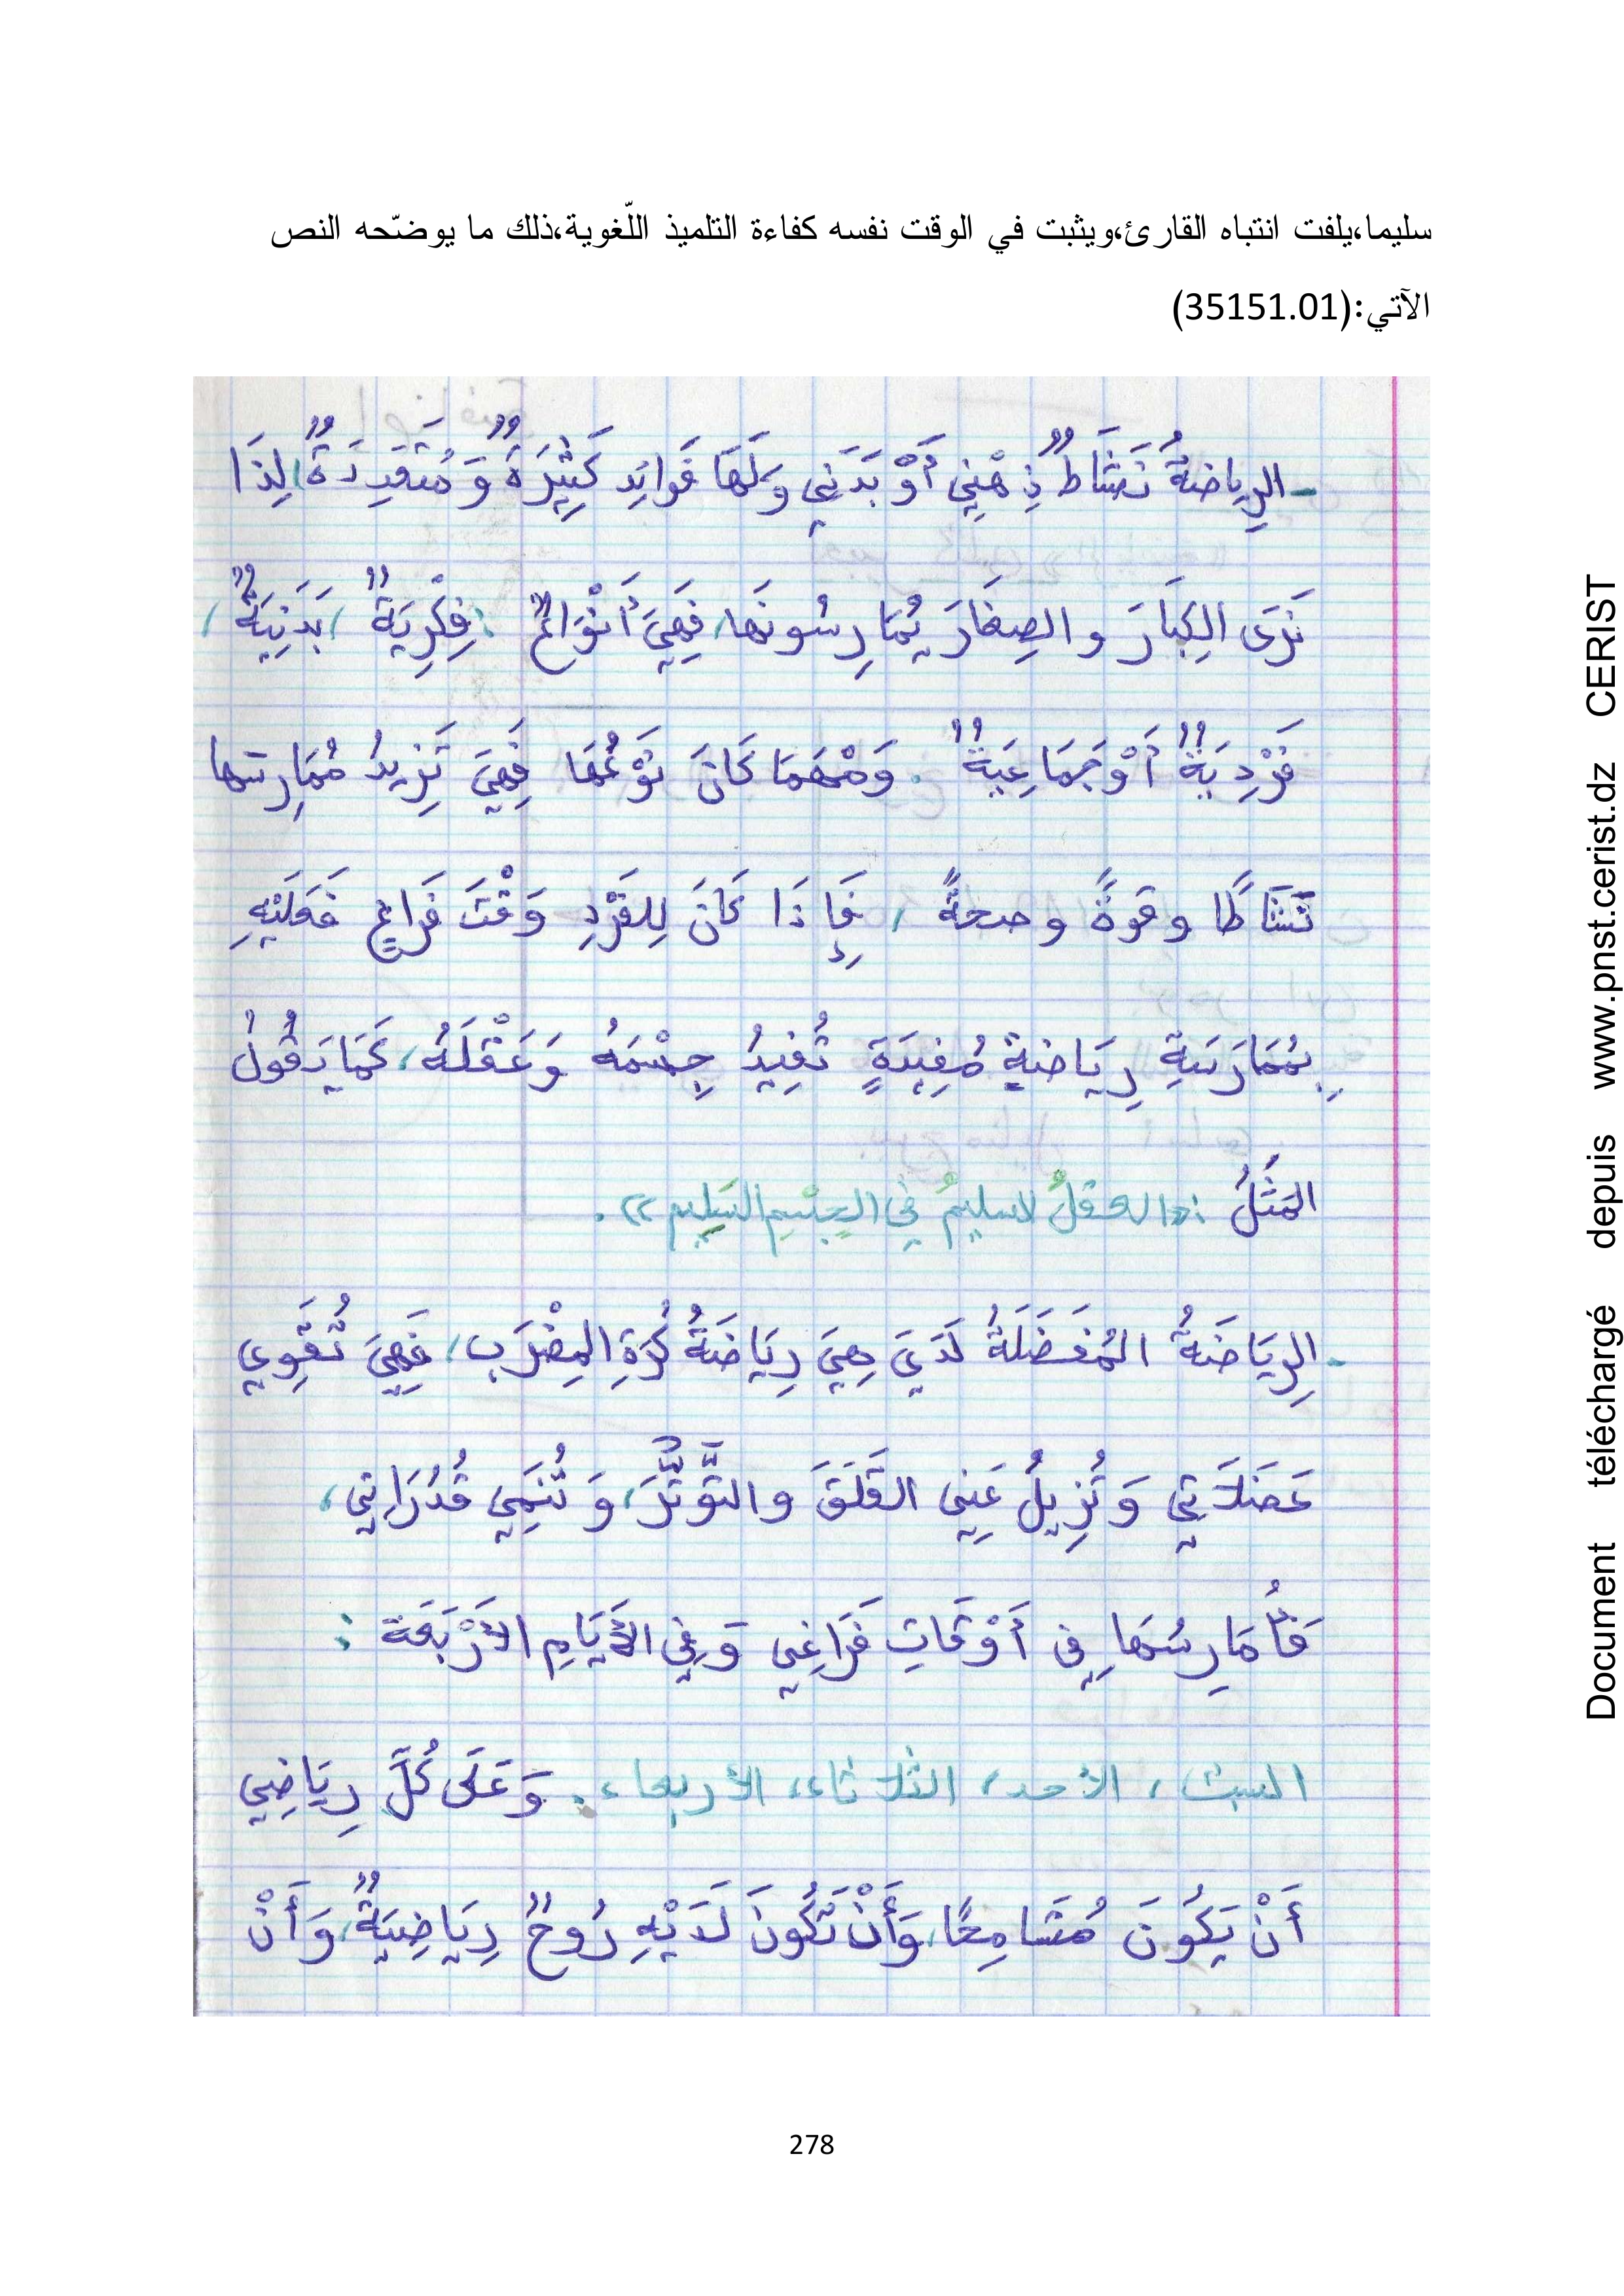 سليما،يلفت انتباه القارئ،ويثبت في الوقت نفسه كفاءة التلميذ اللّغوية،ذلك ما يوضّحه النص
الآتي:(35151.01)
-الرِيِاضةُ نَشَاطٌ ذِهْنِي أَوْ بَدَنِي وَلَهَا فَوائِد كَثِيِرَةٌ وَ مُتَعَدِدَةٌ، لِذَا
نَرَى الكِبَارَ و الصِغَارَ يُمَارِسُونَهَا، فَهِيَ أَنْوَاعٌ : فِكْرِيَةٌ، بَدَنِيَةٌ،
فَرْدِيَةٌ أَوْ جَمَاعِيَةٌ. وَمَهْمَا كَانَ نَوْعُهَا فَهِيَ تَزِيدُ مُمَارِسَها
نَشَاطًا و قوةً و صحةً، فَإِذَا كَانَ لِلفَرْدِ وَقْتَ فَرَاغٍ فَعَلَيْهِ
بِمُمَارَسَةِ رِيَاضةٍ مُفِيدَةٍ تُفِيدُ جِسْمَهُ وَعَقْلَهُ، كَمَا يَقُولُ
المَثَلُ :«العقلُ السليمُ فِي الجِسْمِ السَلِيمِ».
-الرِيَاضَةُ المُفَضَلَةُ لَدَيَ هِيَ رِيَاضَةُ كُرَةِ المِضْرَب، فَهِيَ تُقَوِي
عَضَلاَتِي وَ تُزِيلُ عَنِي القَلَقَ و التَّوَتُّرَ، وَ تُنَمِي قُدُرَاتِي،
فَأُمَارِسُهَا فِي أَوْقَاتِ فَرَاغِي وَ فِي الأَيَامِ الأَرْبَعَة :
السبت، الأحد، الثلاثاء، الأربعاء. وَعَلَى كُلَّ رِيَاضِي
أَنْ يَكُونَ مُتَسَامِحًا، وَأَنْ تَكُونَ لَدَيْهِ رُوحٌ رِيَاضِيَةٌ، وَ أَنْ
278
Document téléchargé depuis www.pnst.cerist.dz CERIST